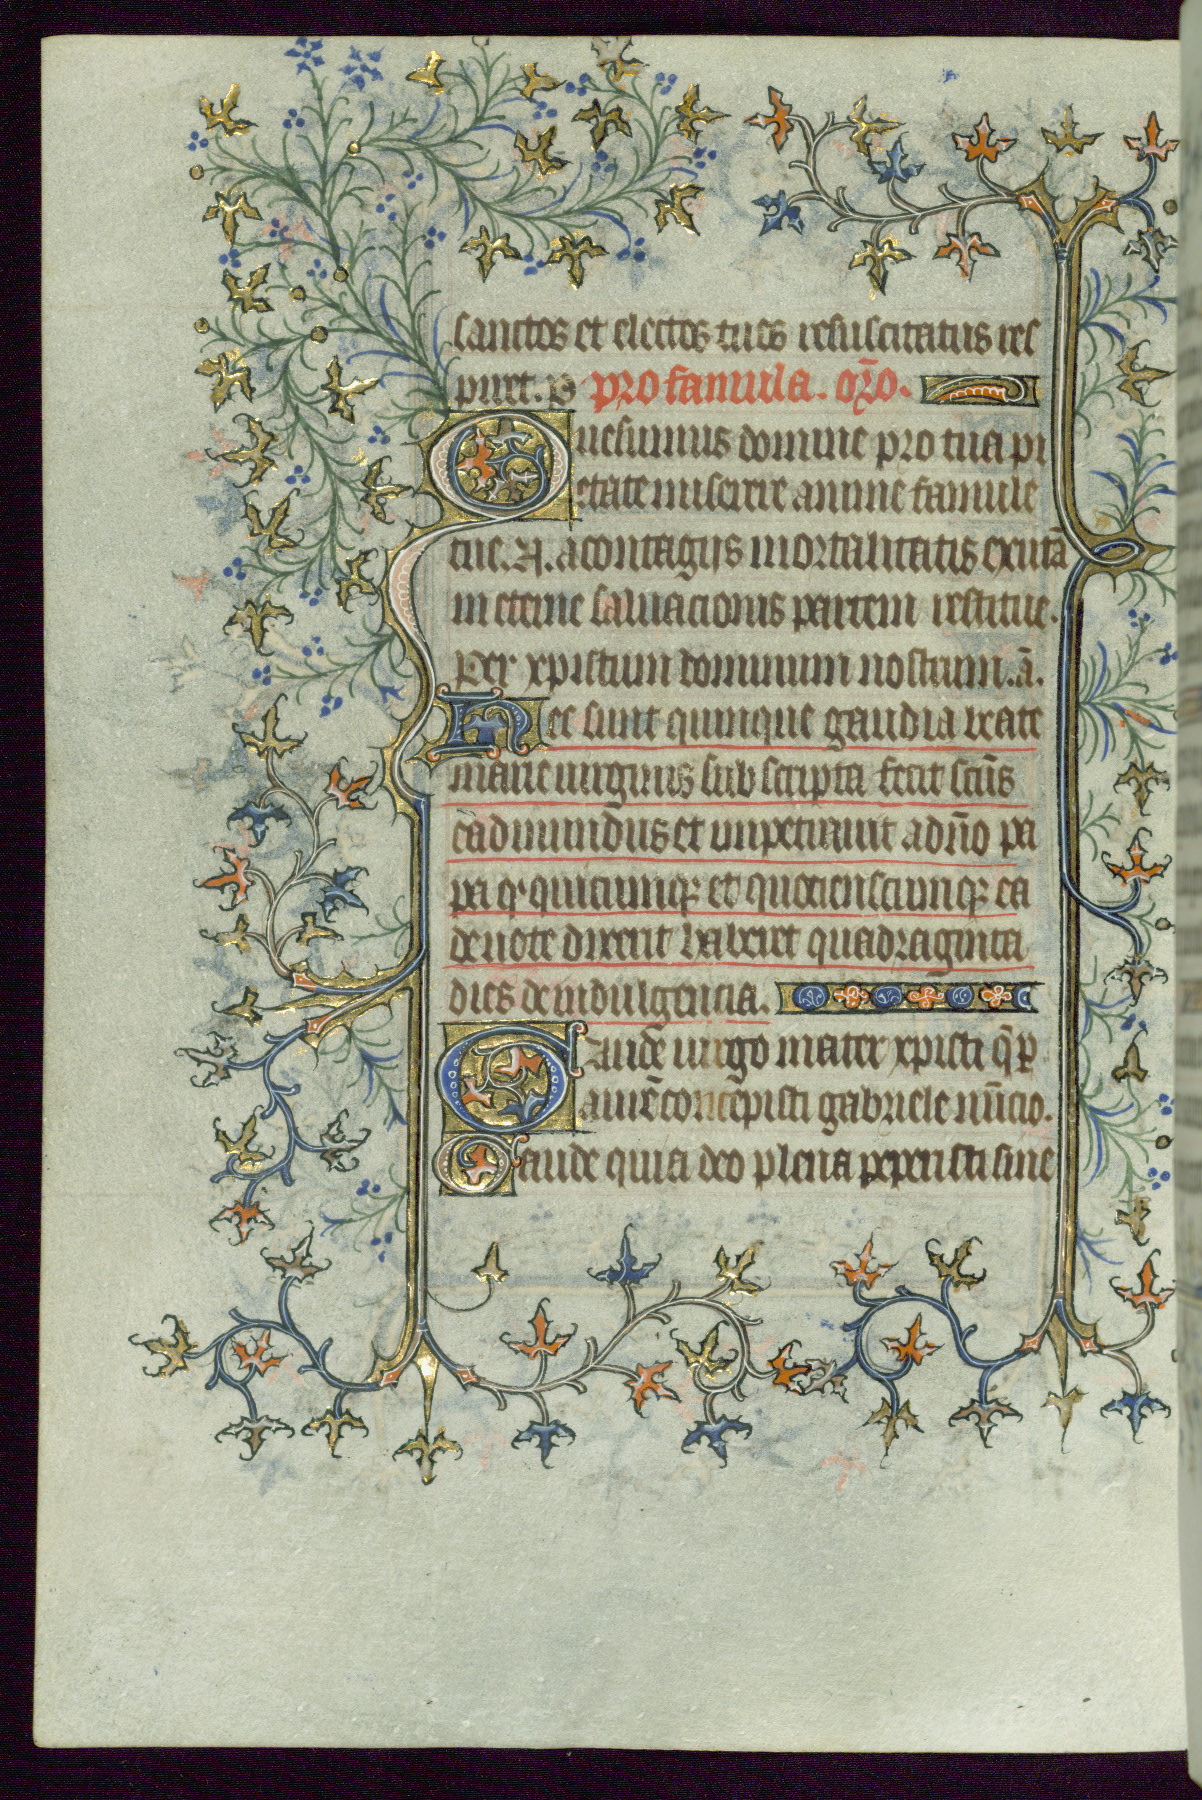 sanctos et electos tuos resuscitatus res
piret. P pro famula. oro.
Quesumus domine pro tua pi
etate miserere anime famule
tue. N. a contagiis mortalitatis exutā
in eterne saluacionis partem restitue.
Per xpistum dominum nostrum. ā.
Hec sunt quinque gaudia beate
marie uirginis sub scripta fecit scūs
eadmundus et impetrauit a dño pa
pa qͬ quicumqꝫ et quocienscumqꝫ ea
deuote dixerit haberet quadraginta
dies de indulgencia.
Gaude uirgo mater xpisti q̄ ꝑ
aurē concepisti gabriele nūcio.
Gaude quia deo plena peperisti sine